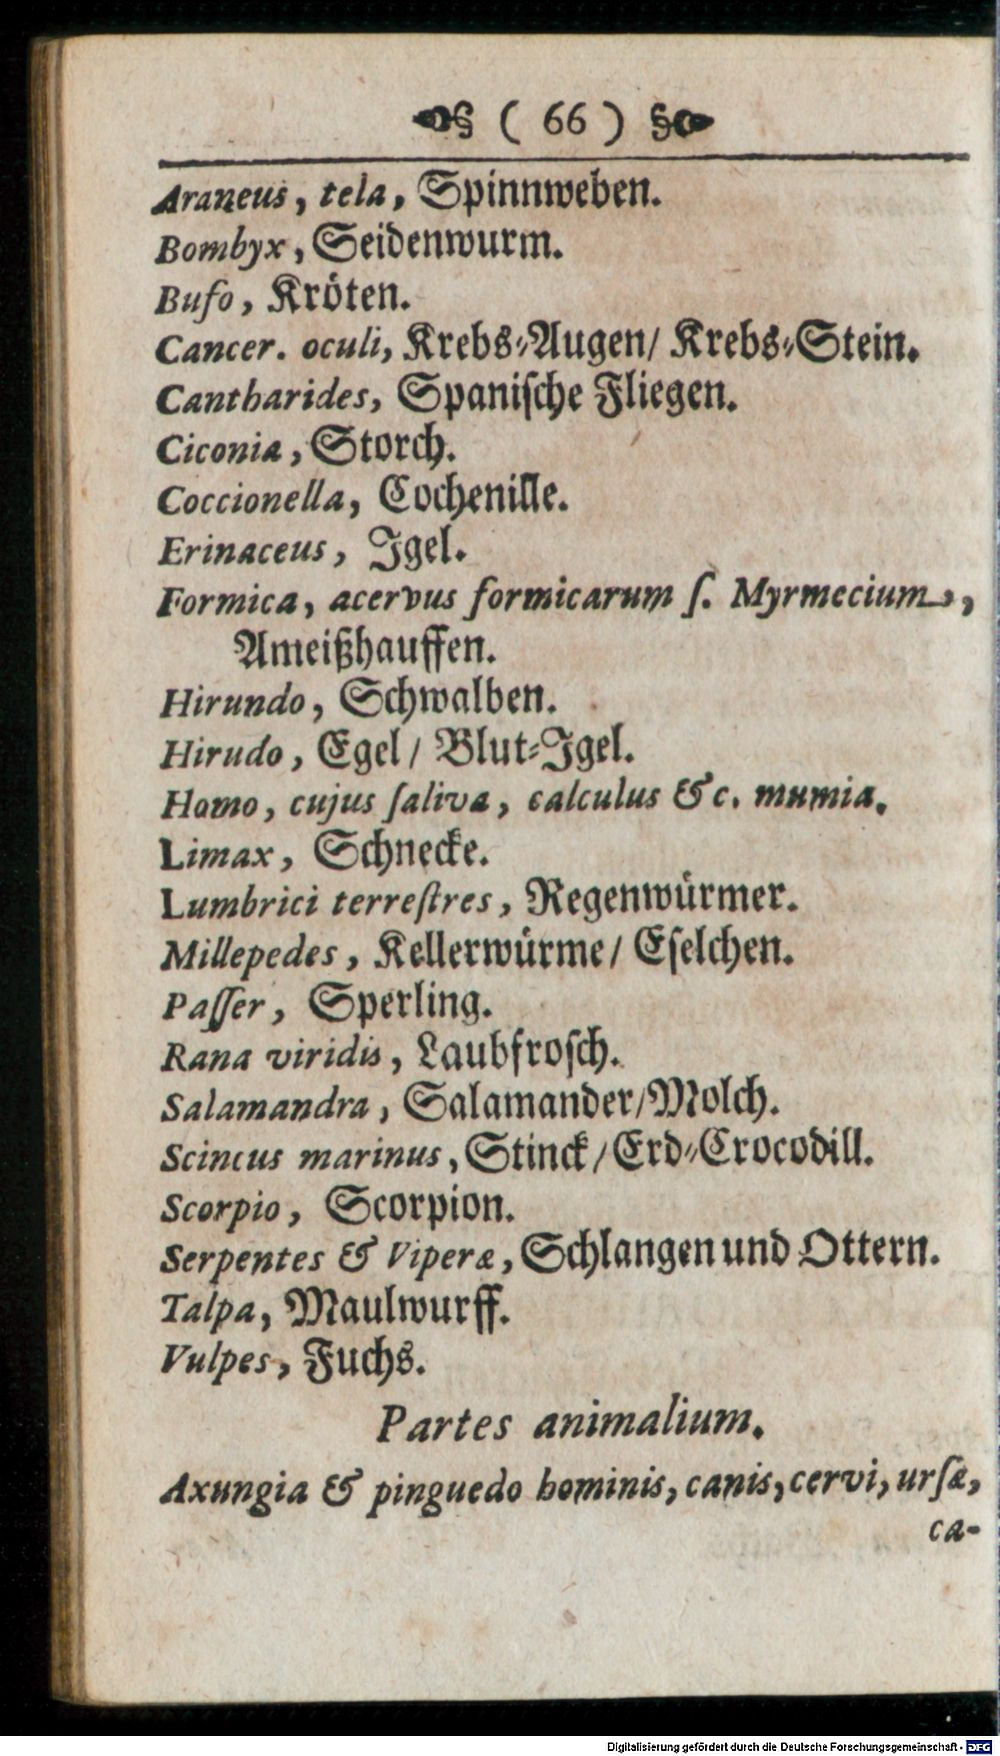 ( 66 )
Araneus, tela, Spinnweben.
Bombyx, Seidenwurm.
Bufo, Kröten.
Cancer. oculi, Krebs-Augen/ Krebs-Stein.
Cantharides, Spaniſche Fliegen.
Ciconia, Storch.
Coccionella, Cochenille.
Erinaceus, Igel.
Formica, acervus formicarum ſ. Myrmecium,
Ameißhauffen.
Hirundo, Schwalben.
Hirudo, Egel/ Blut-Igel.
Homo, cujus ſaliva, calculus &c. mumia.
Limax, Schnecke.
Lumbrici terreſtres, Regenwürmer.
Millepedes, Kellerwürme/ Eſelchen.
Paſſer, Sperling.
Rana viridis, Laubfroſch.
Salamandra, Salamander/Molch.
Scincus marinus, Stinck/Erd-Crocodill.
Scorpio, Scorpion.
Serpentes & Viperæ, Schlangen und Ottern.
Talpa, Maulwurff.
Vulpes, Fuchs.
Partes animalium.
Axungia & pinguedo hominis, canis, cervi, urſæ,
ca-
Digitalisierung gefördert durch die Deutsche Forschungsgemeinschaft - DFG